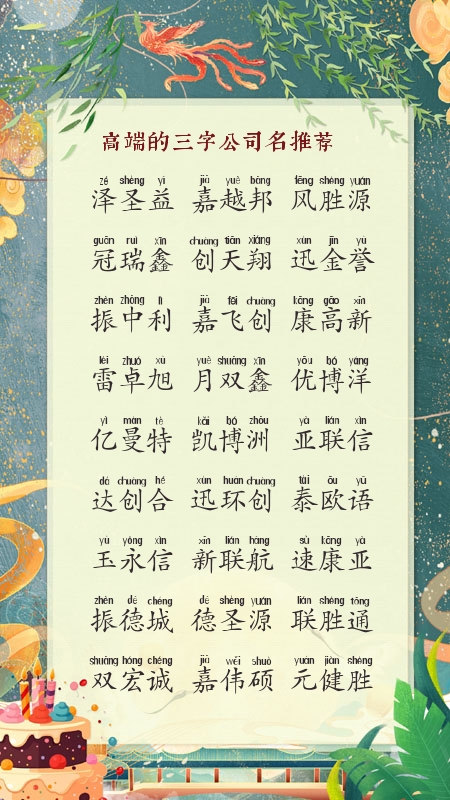 高端的三字公司名推荐
zé shèng yì jiā yuè bāng fēng shèng yuán
泽圣益 嘉越邦 风胜源
guān ruì xīn chuàng tiān xiáng xùn jīn yù
冠瑞鑫 创天翔 迅金誉
zhèn zhōng lì jiā fēi chuàng kāng gāo xīn
振中利 嘉飞创 康高新
léi zhuó xù yuè shuāng xīn yōu bó yáng
雷卓旭 月双鑫 优博洋
yì màn tè kǎi bó zhōu yà lián xìn
亿曼特 凯博洲 亚联信
dá chuàng hé xùn huán chuàng tài ōu yǔ
达创合 迅环创 泰欧语
yù yǒng xìn xīn lián háng sù kāng yà
玉永信 新联航 速康亚
zhèn dé chéng dé shèng yuán lián shèng tōng
振德城 德圣源 联胜通
shuāng hóng chéng jiā wěi shuò yuán jiàn shèng
双宏诚 嘉伟硕 元健胜